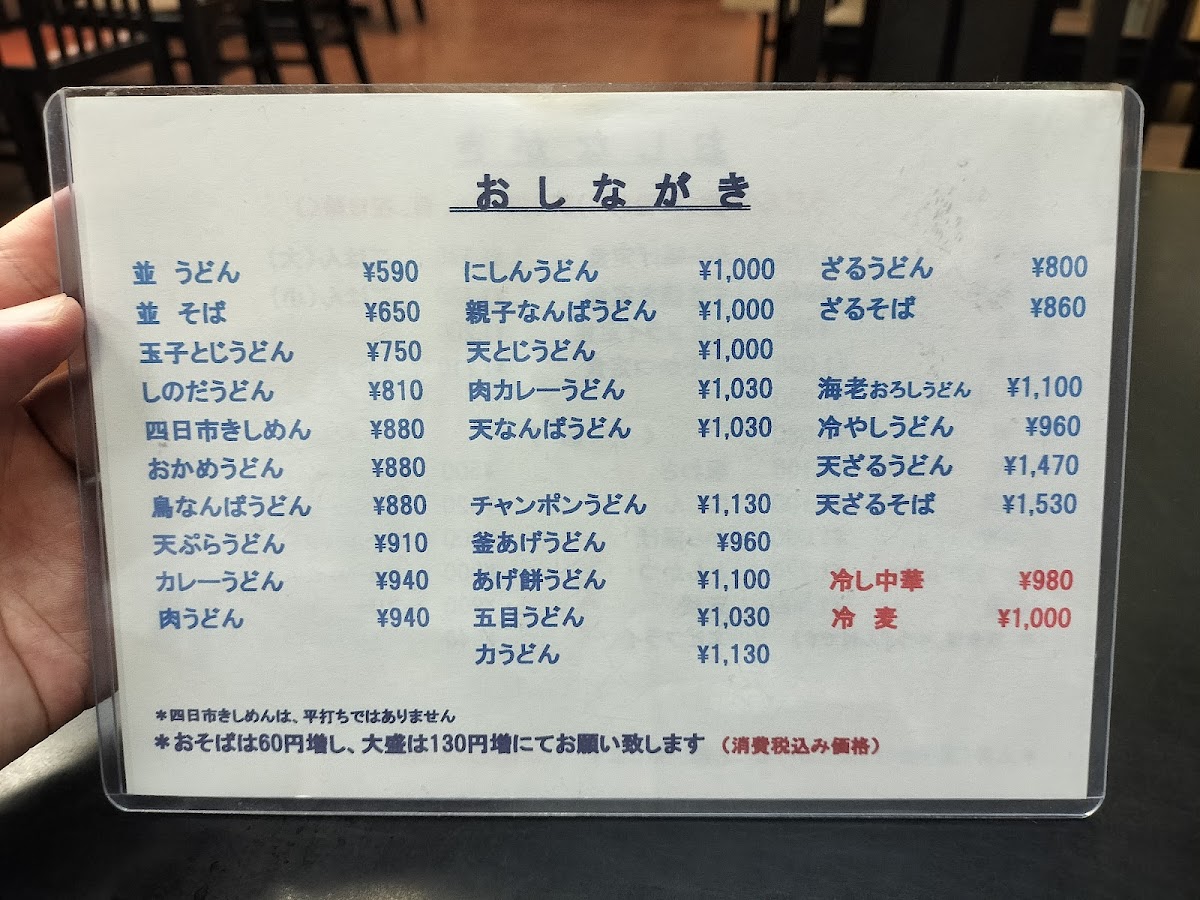 おしながき
並 うどん ¥590
並 そば ¥650
玉子とじうどん ¥750
しのだうどん ¥810
四日市きしめん ¥880
おかめうどん ¥880
鳥なんばうどん ¥880
天ぷらうどん ¥910
カレーうどん ¥940
肉うどん ¥940
にしんうどん ¥1,000
親子なんばうどん ¥1,000
天とじうどん ¥1,000
肉カレーうどん ¥1,030
天なんばうどん ¥1,030
チャンポンうどん ¥1,130
釜あげうどん ¥960
あげ餅うどん ¥1,100
五目うどん ¥1,030
力うどん ¥1,130
ざるうどん ¥800
ざるそば ¥860
海老おろしうどん ¥1,100
冷やしうどん ¥960
天ざるうどん ¥1,470
天ざるそば ¥1,530
冷し中華 ¥980
冷 麦 ¥1,000
＊四日市きしめんは、平打ちではありません
＊おそばは60円増し、大盛は130円増にてお願い致します （消費税込み価格）